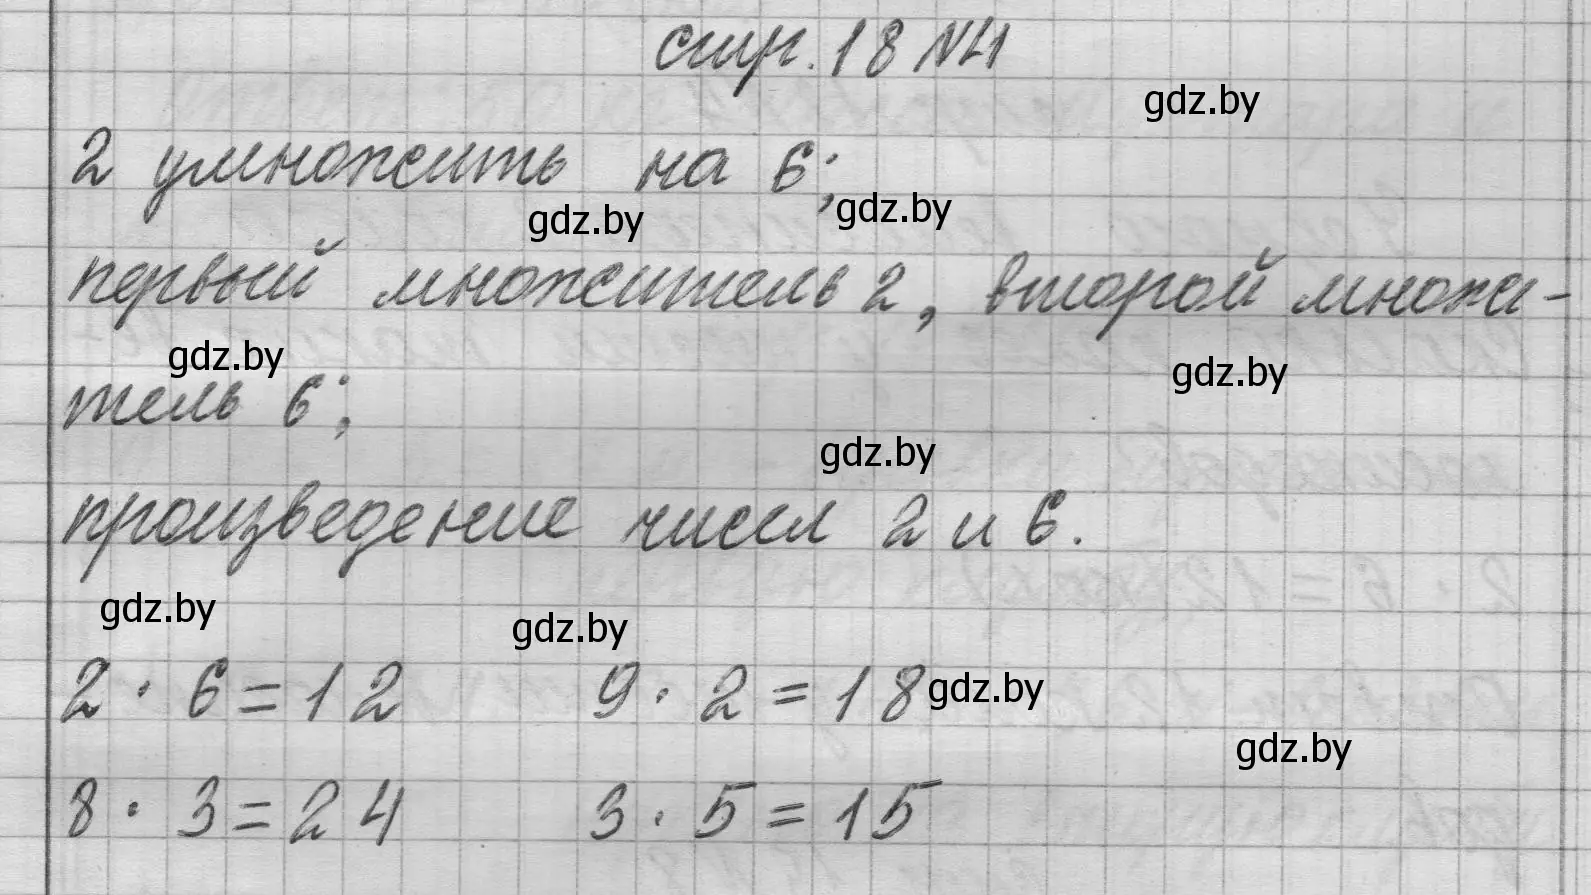 стр. 18 №4
gdz.by
2 умножить на 6;
gdz.by gdz.by
первый множитель 2, второй множи-
gdz.by gdz.by
тель 6;
gdz.by
произведение чисел 2 и 6.
gdz.by gdz.by
2 · 6 = 12 9 · 2 = 18 gdz.by
gdz.by
8 · 3 = 24 3 · 5 = 15